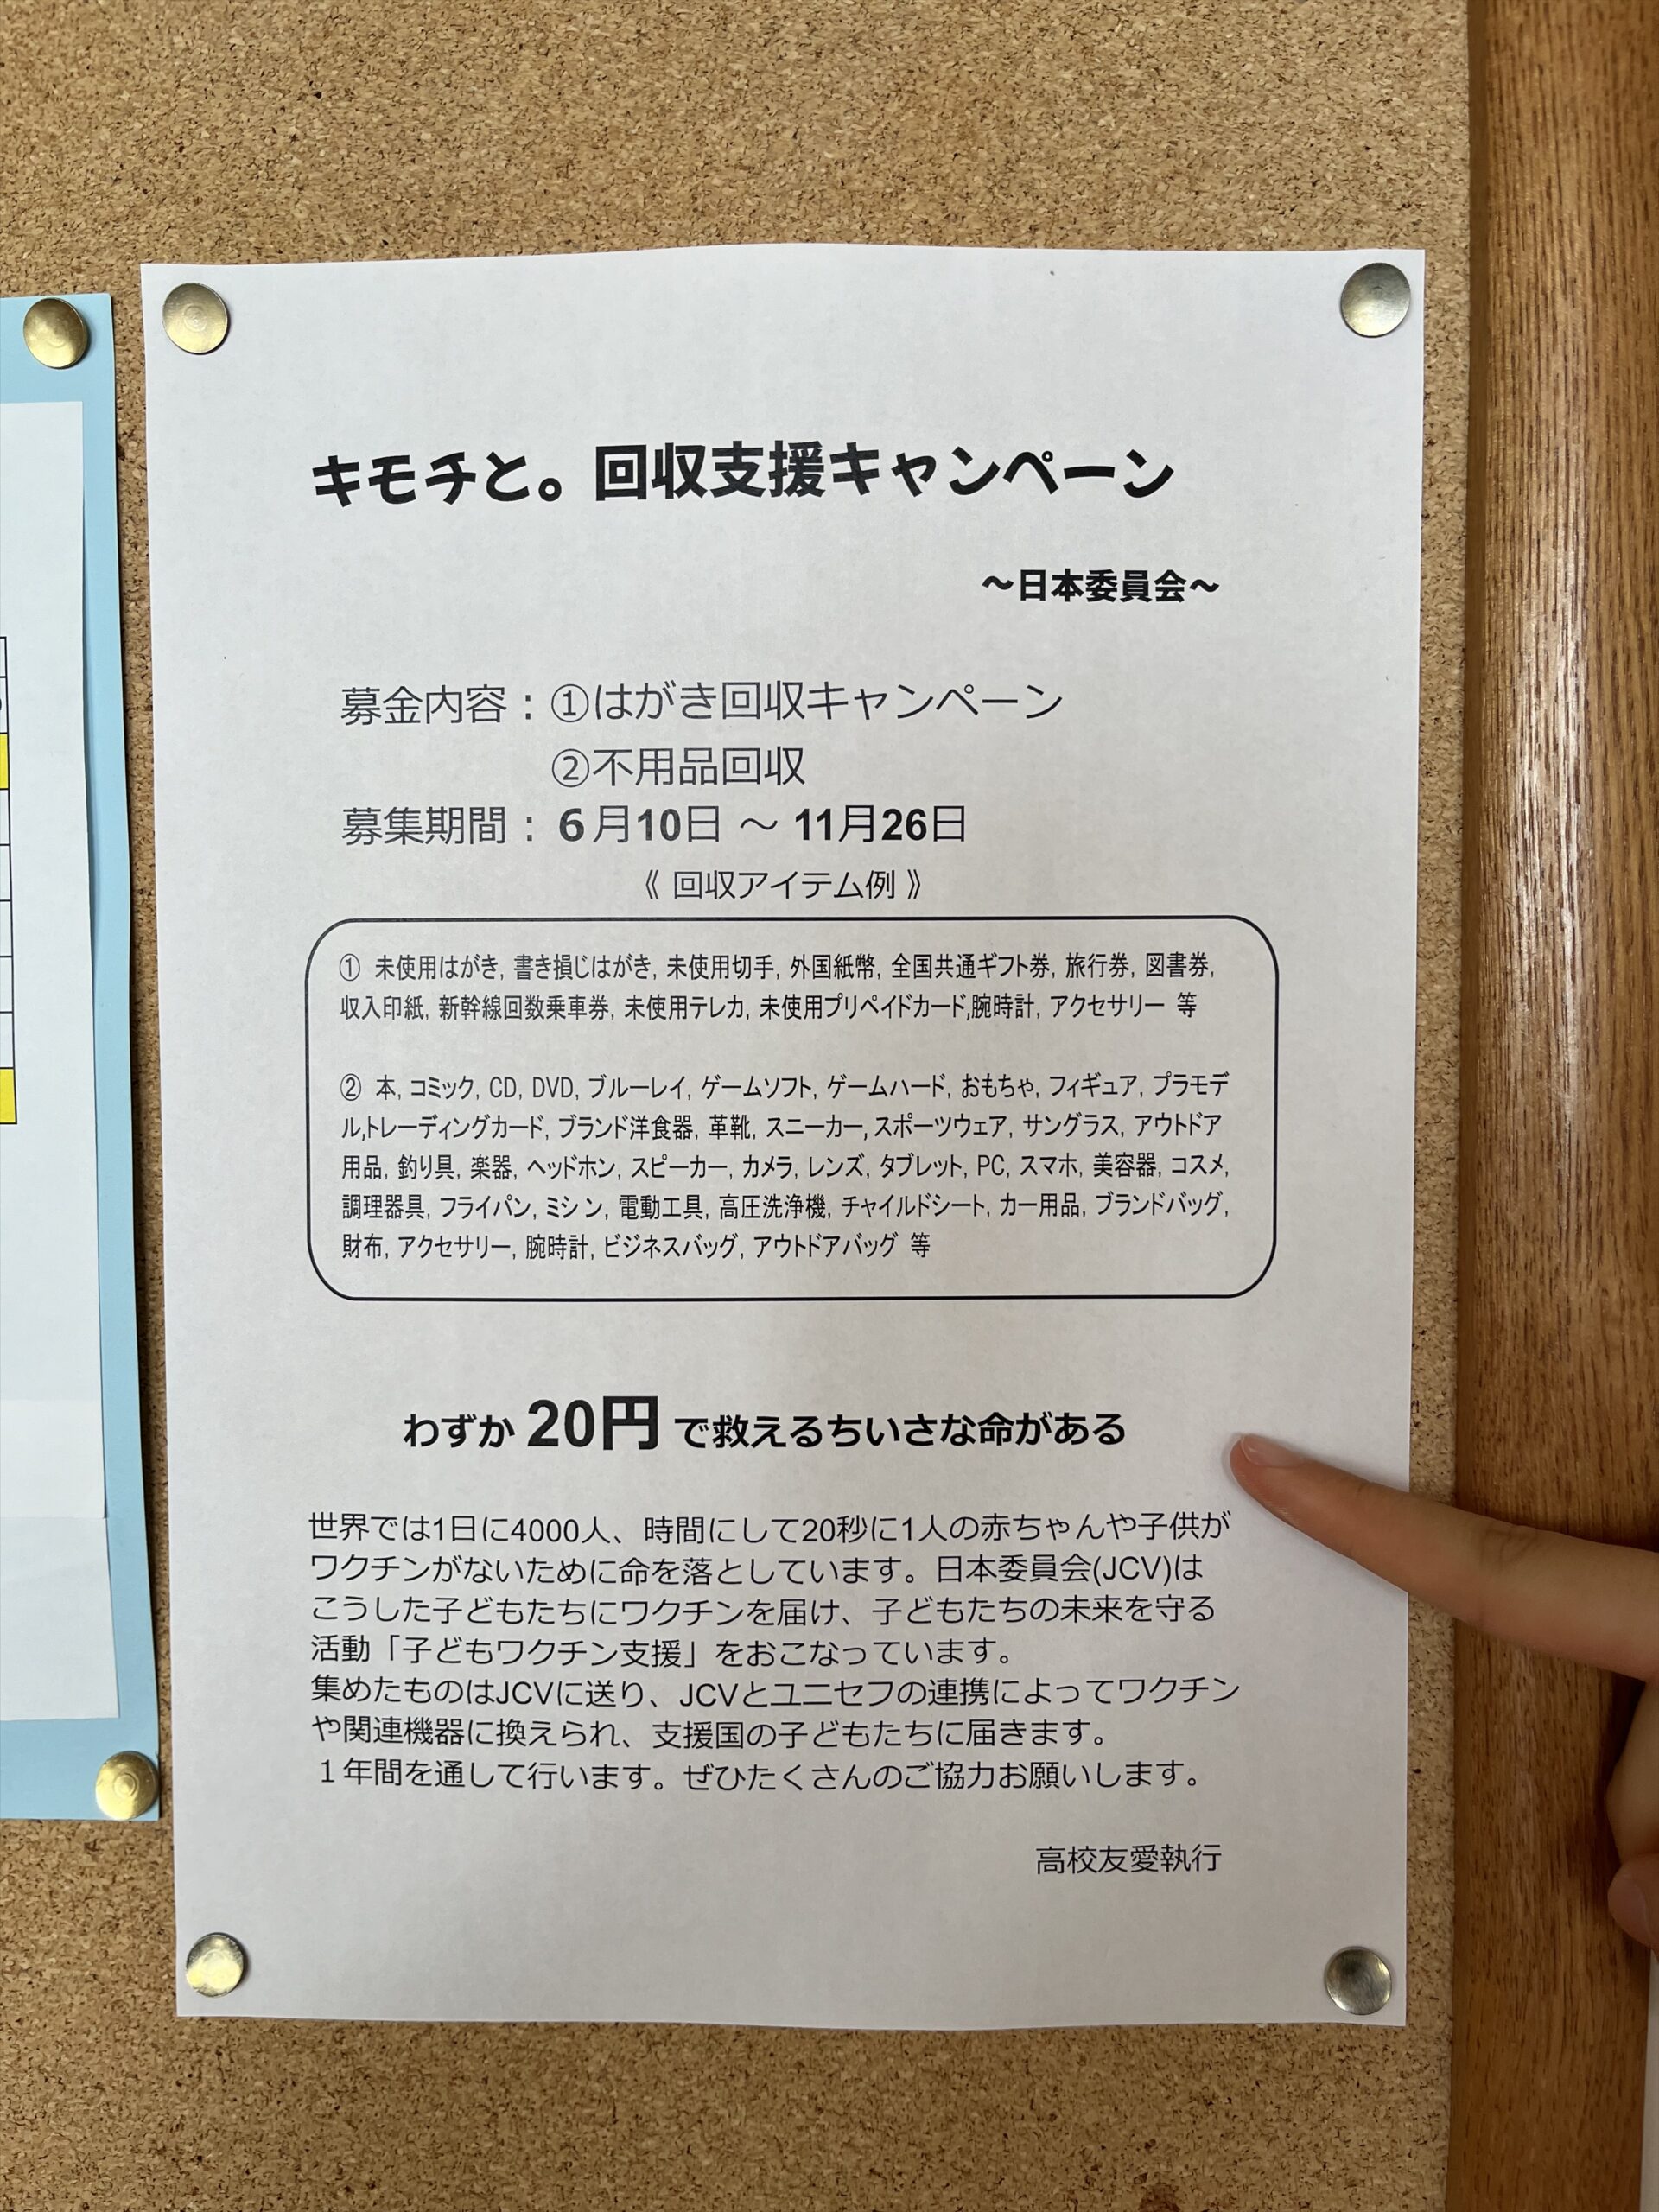 キモチと。回収支援キャンペーン
～日本委員会～
募金内容：①はがき回収キャンペーン
②不用品回収
募集期間：６月10日 ～ 11月26日
《 回収アイテム例 》
① 未使用はがき, 書き損じはがき, 未使用切手, 外国紙幣, 全国共通ギフト券, 旅行券, 図書券,
収入印紙, 新幹線回数乗車券, 未使用テレカ, 未使用プリペイドカード,腕時計, アクセサリー 等
② 本, コミック, CD, DVD, ブルーレイ, ゲームソフト, ゲームハード, おもちゃ, フィギュア, プラモデ
ル,トレーディングカード, ブランド洋食器, 革靴, スニーカー, スポーツウェア, サングラス, アウトドア
用品, 釣り具, 楽器, ヘッドホン, スピーカー, カメラ, レンズ, タブレット, PC, スマホ, 美容器, コスメ,
調理器具, フライパン, ミシン, 電動工具, 高圧洗浄機, チャイルドシート, カー用品, ブランドバッグ,
財布, アクセサリー, 腕時計, ビジネスバッグ, アウトドアバッグ 等
わずか 20円 で救えるちいさな命がある
世界では1日に4000人、時間にして20秒に1人の赤ちゃんや子供が
ワクチンがないために命を落としています。日本委員会(JCV)は
こうした子どもたちにワクチンを届け、子どもたちの未来を守る
活動「子どもワクチン支援」をおこなっています。
集めたものはJCVに送り、JCVとユニセフの連携によってワクチン
や関連機器に換えられ、支援国の子どもたちに届きます。
１年間を通して行います。ぜひたくさんのご協力お願いします。
高校友愛執行